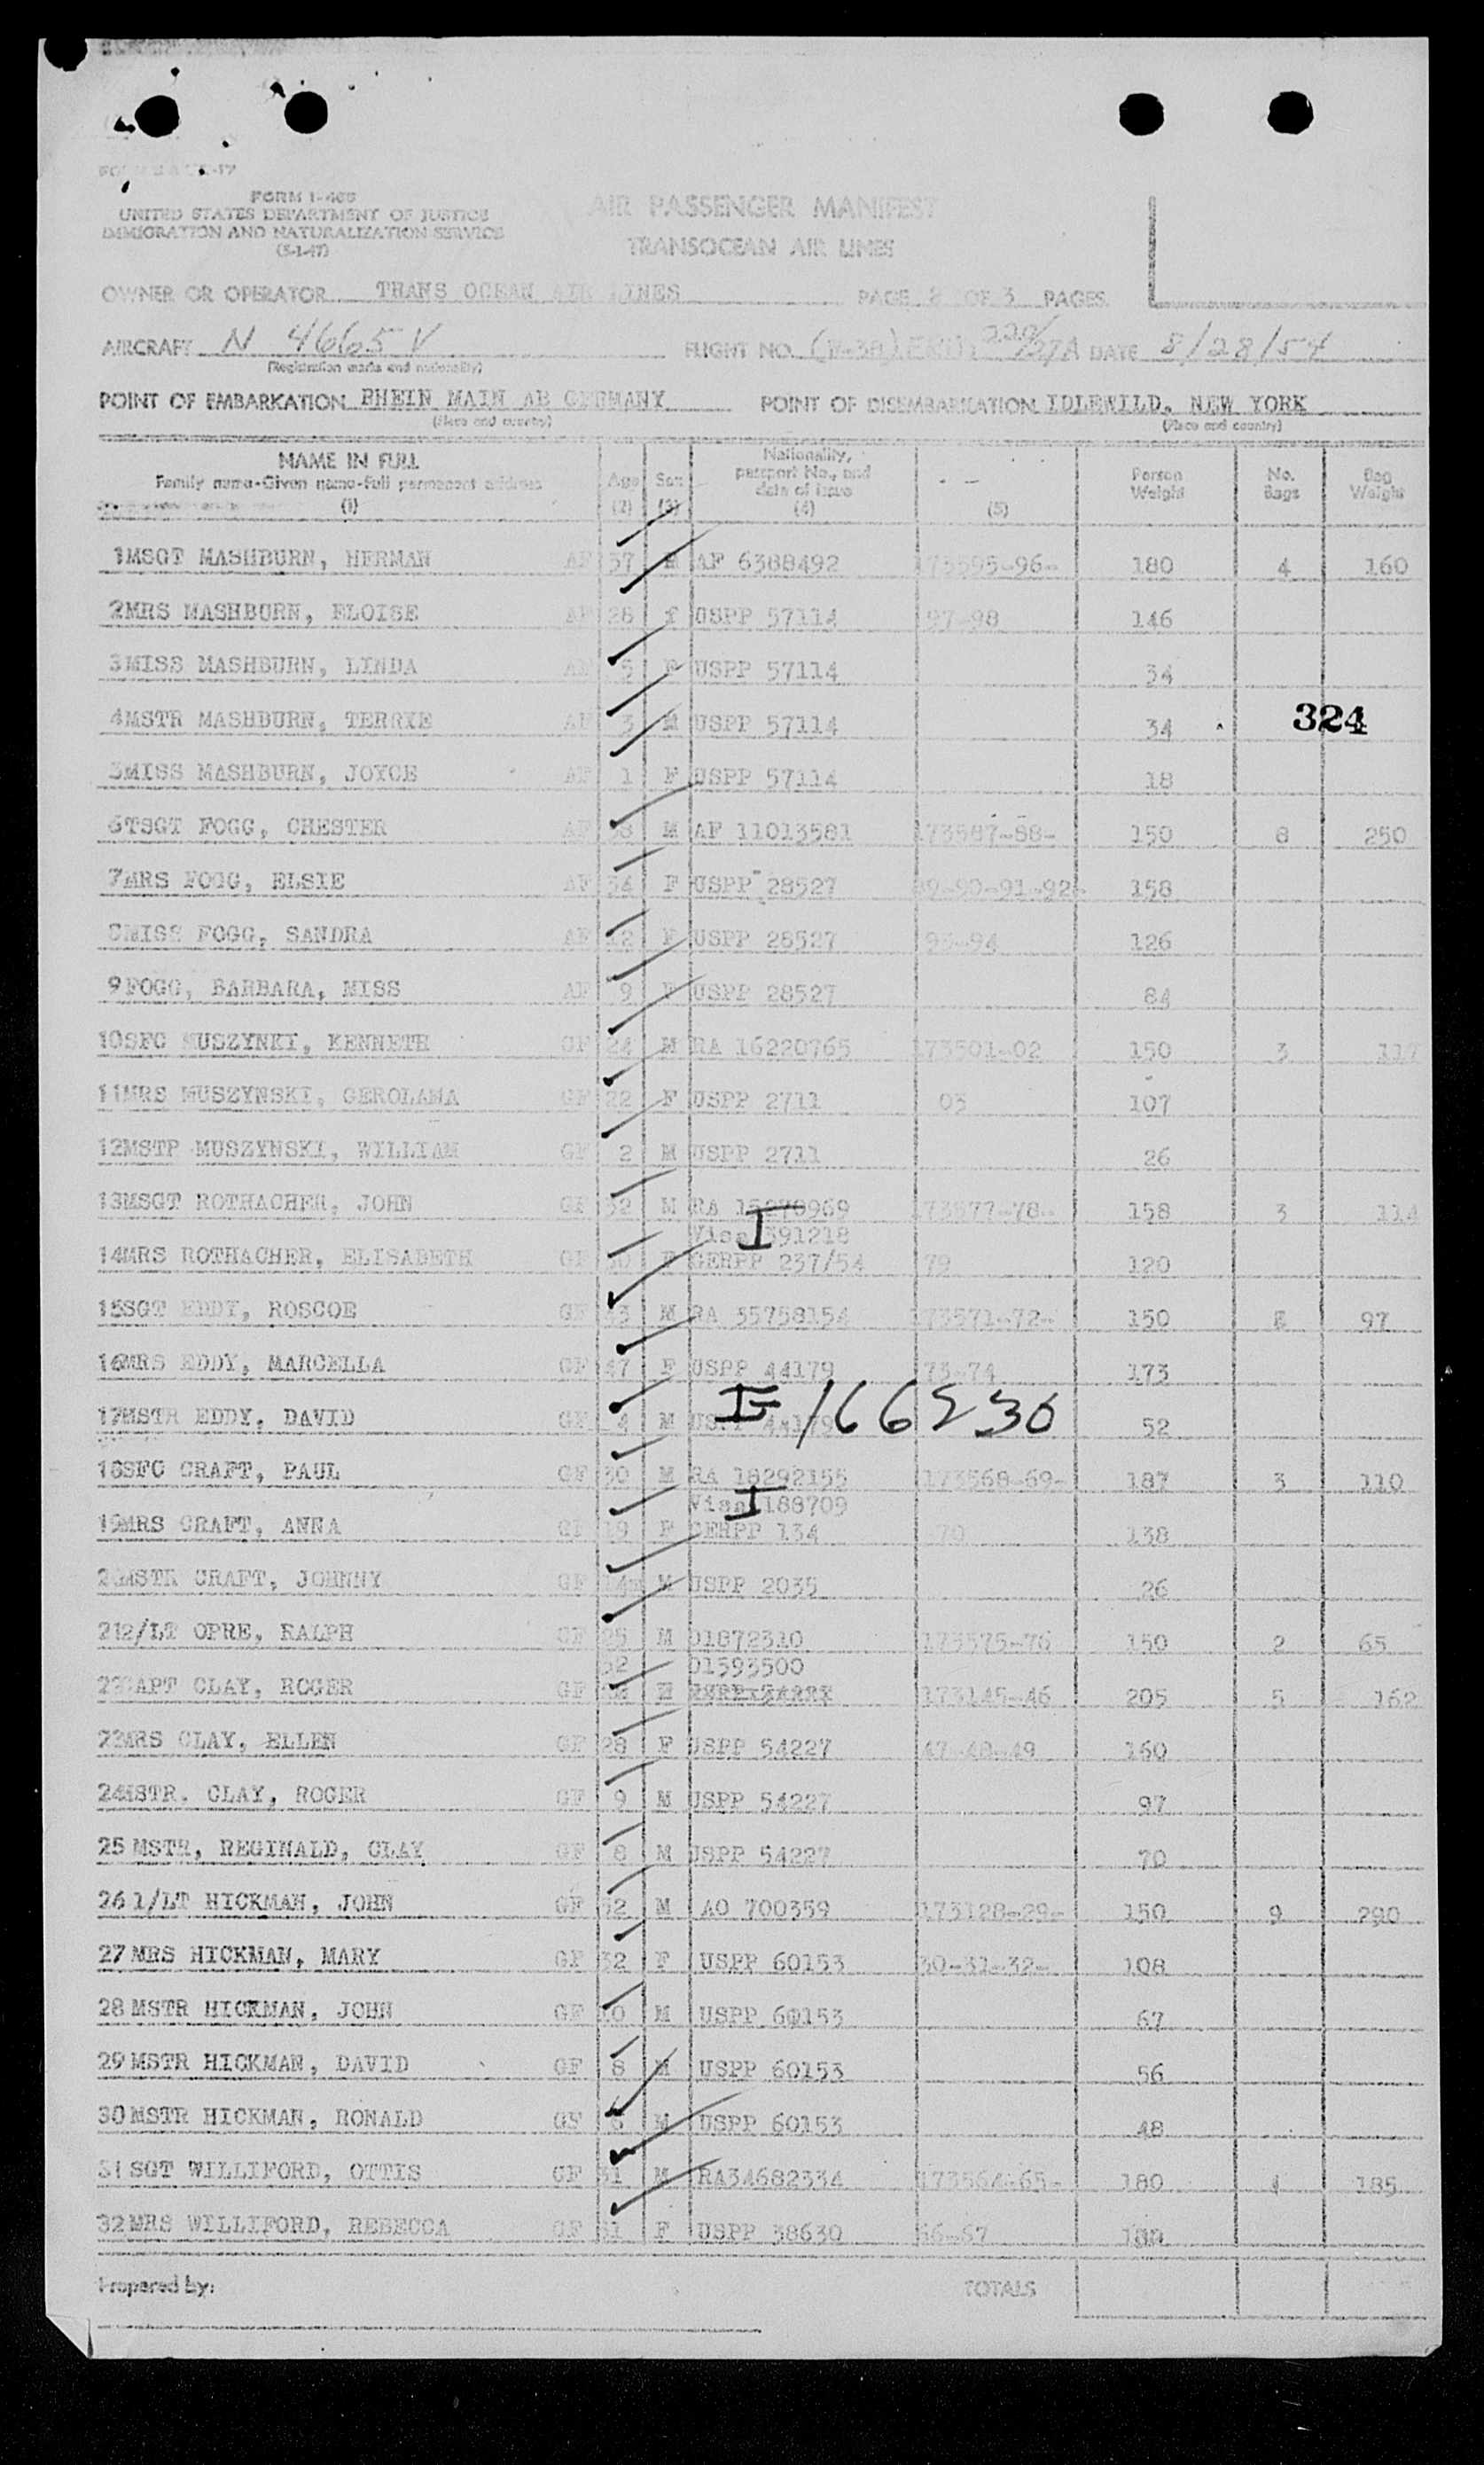 FORM I-466
UNITED STATES DEPARTMENT OF JUSTICE
IMMIGRATION AND NATURALIZATION SERVICE
(5-1-47)
AIR PASSENGER MANIFEST
TRANSOCEAN AIR LINES
OWNER OR OPERATOR TRANS OCEAN AIR LINES PAGE 2 OF 3 PAGES
AIRCRAFT N 4665 V FLIGHT NO. DATE 8/28/54
(Registration marks and nationality)
POINT OF EMBARKATION RHEIN MAIN AB GERMANY POINT OF DISEMBARKATION IDLEWILD, NEW YORK
(Place and country) (Place and country)
NAME IN FULL Age Sex Nationality, passport No., and date of issue Person Weight No. Bags Bag Weight
Family name-Given name-full permanent address
(1) (2) (3) (4) (5)
1MSGT MASHBURN, HERMAN AF 37 M AF 6388492 173595-96- 180 4 160
2MRS MASHBURN, ELOISE AF 28 f USPP 57114 97-98 146
3MISS MASHBURN, LINDA AF 5 F USPP 57114 34
324
4MSTR MASHBURN, TERRYE AF 3 M USPP 57114 34
5MISS MASHBURN, JOYCE AF 1 F USPP 57114 18
6TSGT FOGG, CHESTER AF 38 M AF 11013581 173587-88- 150 8 250
7MRS FOGG, ELSIE AF 34 F USPP 28527 89-90-91-92- 158
8MISS FOGG, SANDRA AF 12 F USPP 28527 93-94 126
9FOGG, BARBARA, MISS AF 9 F USPP 28527 84
10SFC MUSZYNKI, KENNETH GF 24 M RA 16220765 173501-02 150 3 117
11MRS MUSZYNSKI, GEROLAMA GF 22 F USPP 2711 03 107
12MSTR MUSZYNSKI, WILLIAM GF 2 M USPP 2711 26
13MSGT ROTHACHER, JOHN GF 32 M RA 15278969 173577-78- 158 3 114
I
Visa 591218
14MRS ROTHACHER, ELISABETH GF 30 F GERPP 237/54 79 120
15SGT EDDY, ROSCOE GF 43 M RA 35758154 173571-72- 150 97
16MRS EDDY, MARCELLA GF 47 F USPP 44179 73-74 173
17MSTR EDDY, DAVID GF 4 M USPP 44179 52
166230
18SFC CRAFT, PAUL GF 30 M RA 18292155 173568-69- 187 3 110
I
Visa 188709
19MRS CRAFT, ANNA GF 19 F GERPP 134 70 138
20MSTR CRAFT, JOHNNY GF 14m M USPP 2035 26
212/LT OPRE, RALPH GF 25 M 01872310 173575-76 150 2 65
32 01593500
22CAPT CLAY, ROGER GF M 173145-46 205 5 162
23MRS CLAY, ELLEN GF 28 F USPP 54227 47-48-49 160
24MSTR. CLAY, ROGER GF 9 M USPP 54227 97
25 MSTR, REGINALD, CLAY GF 8 M USPP 54227 70
26 1/LT HICKMAN, JOHN GF 32 M AO 700359 173128-29- 150 9 290
27 MRS HICKMAN, MARY GF 32 F USPP 60153 30-31-32- 108
28 MSTR HICKMAN, JOHN GF 10 M USPP 60153 67
29 MSTR HICKMAN, DAVID GF 8 M USPP 60153 56
30 MSTR HICKMAN, RONALD GF 6 M USPP 60153 48
31 SGT WILLIFORD, OTTIS GF 31 M RA34682334 173564-65- 180 4 185
32 MRS WILLIFORD, REBECCA GF 31 F USPP 38630 66-67
Prepared by: TOTALS